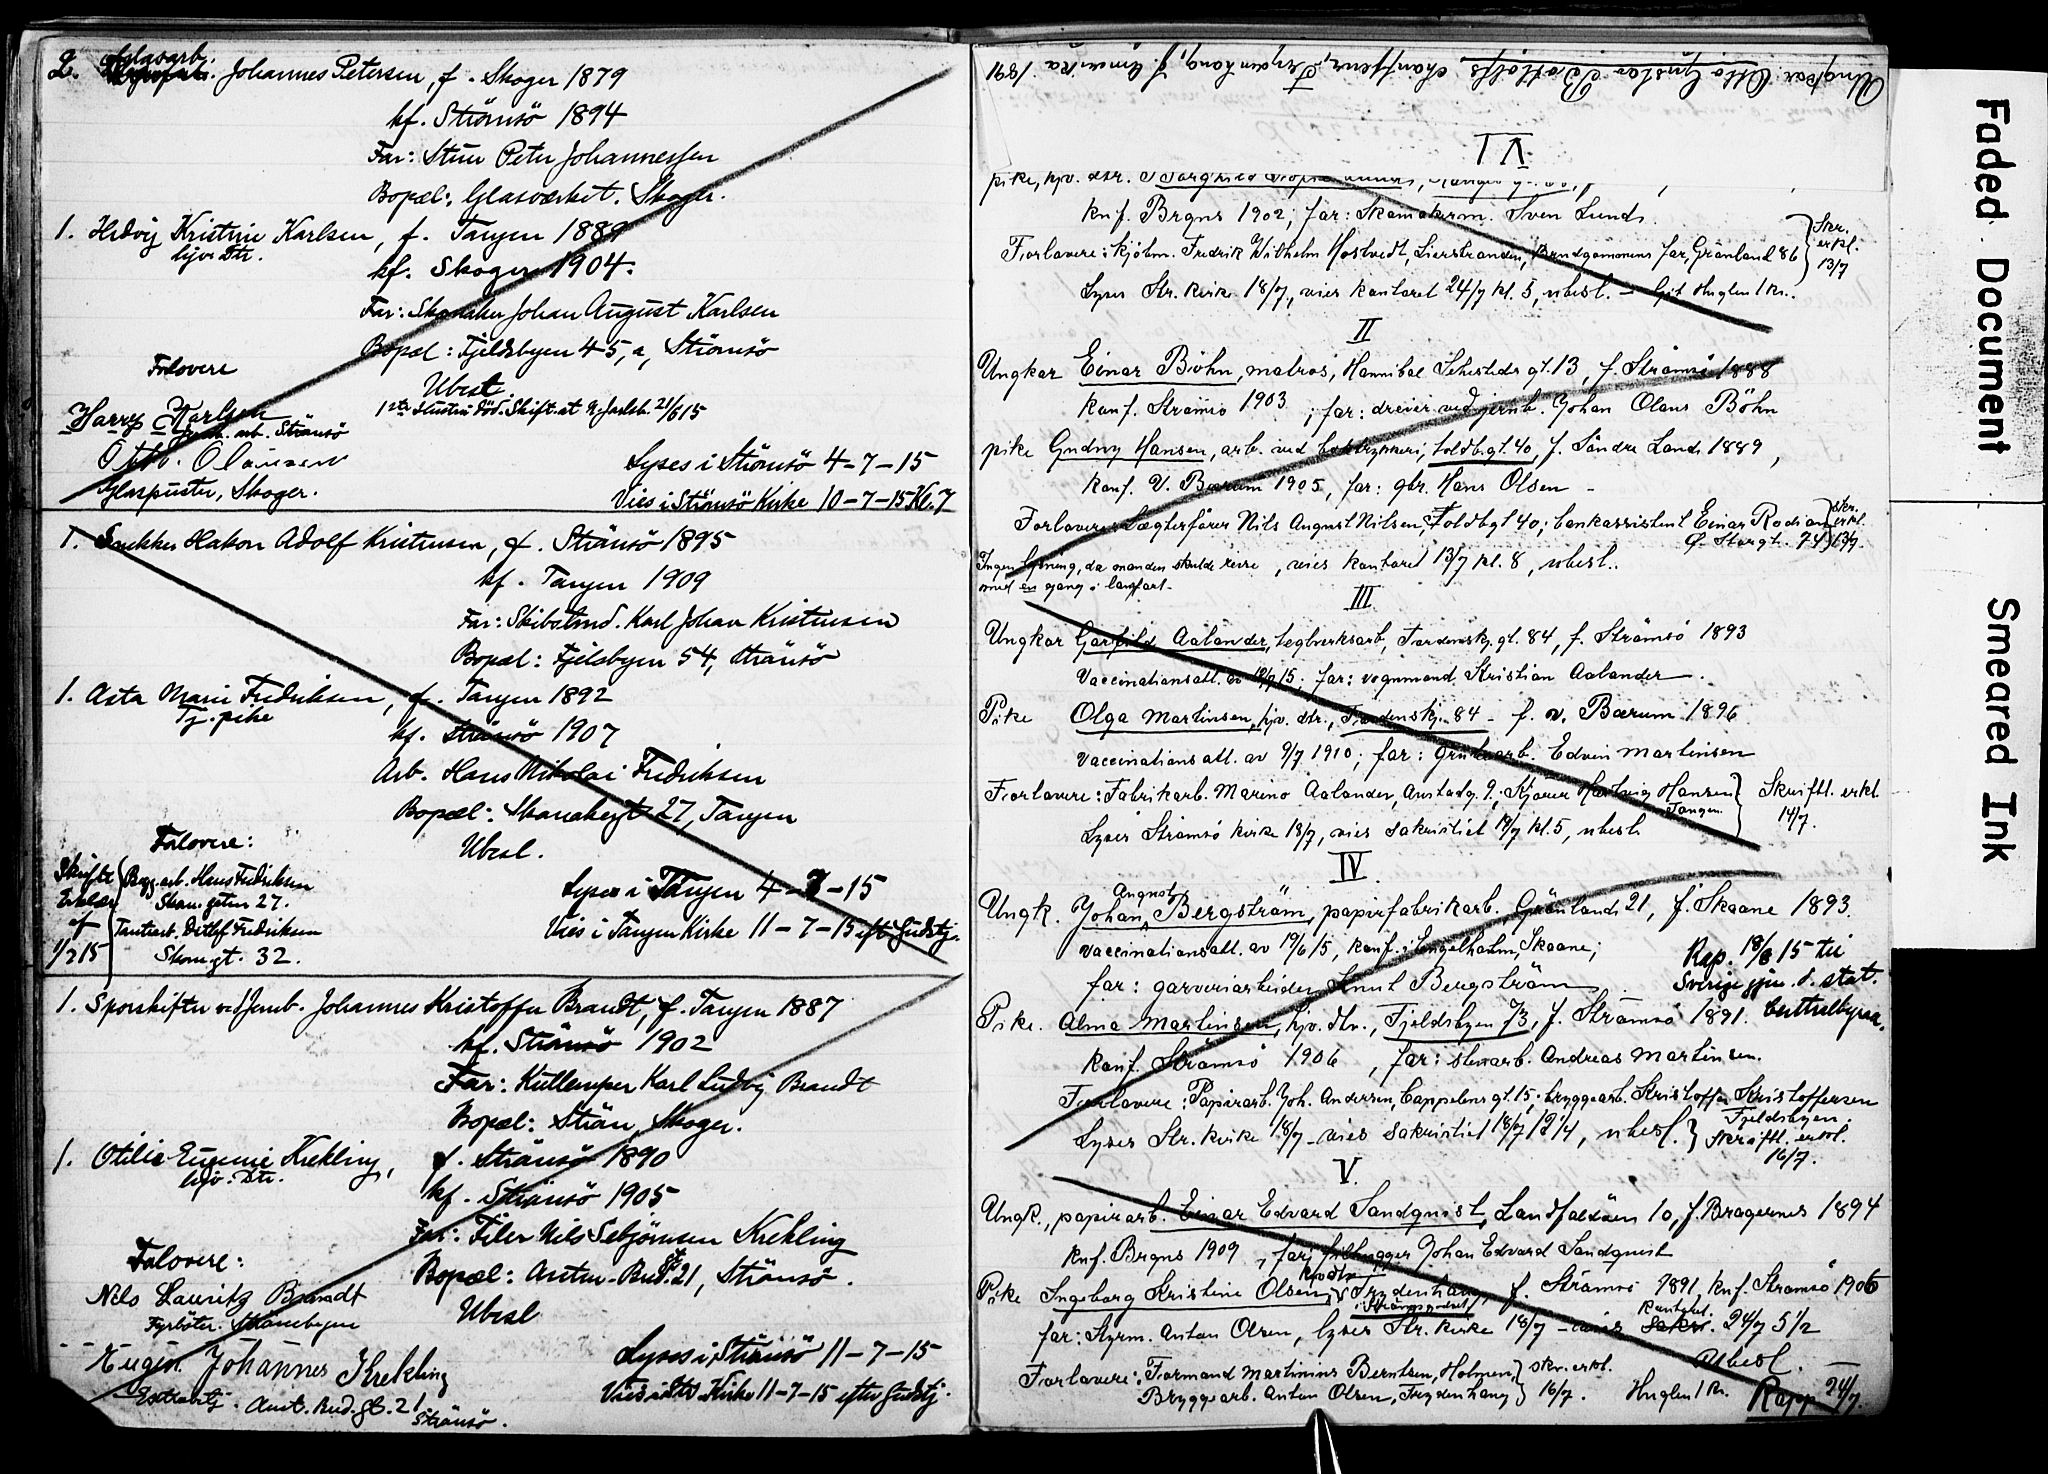 2. Glasarb. Johannes Petersen, f. Skoger 1879
kf. Strömsö 1894
Far: Stuer Peter Johannessen
Bopæl: Glasværket. Skoger.
1. Hedvig Kristine Karlsen, f. Tangen 1889
hjv. Dtr.
kf. Skoger 1904.
Far: Skomaker Johan August Karlsen
Bopæl: Fjeldsbyen 45, a, Strömsö
Forlovere
Ubesl.
1ste Hustru död. Skift. at N. Jarlsb. 21/6 15
Harry Karlsen
Jernb. arb. Strömsö
Otto. Olaussen
Glaspuster, Skoger.
Lyses i Strömsö 4-7-15
Vies i Strömsö Kirke 10-7-15 Kl. 7
1. Snekker Hakon Adolf Kristensen, f. Strömsö 1895
kf. Tangen 1909
Far: Skibstmd. Karl Johan Kristensen
Bopæl: Fjelsbyen 54, Strömsö
1. Asta Marie Fredriksen, f. Tangen 1892
Tj. pike
kf. Strömsö 1907
Arb. Hans Nikolai Fredriksen
Bopæl: Skomakergt 27, Tangen
Forlovere:
Ubesl.
Skiftl. Erklær. af 1/7 15
Brygg. arb. Hans Fredriksen
Skom. gaten 27.
Ditlef Fredriksen
Skom. gt. 32.
Lyses i Tangen 4-7-15
Vies i Tangen Kirke 11-7-15 eft. Gudstj.
1. Sporskifter ved Jernb. Johannes Kristoffer Brandt, f. Tangen 1887
kf. Strömsö 1902
Far: Kullemper Karl Ludvig Brandt
Bopæl: Ström, Skoger.
1. Otilie Eugenie Krekling, f. Strömsö 1890
hjv. Dtr.
kf. Strömsö 1905
Far: Filer Nils Sebjörnsen Krekling
Bopæl: Anton-Bud. gt 21, Strömsö.
Forlovere:
Ubesl
Nils Lauritz Brandt
Fyrböter. Strömsbyen
Eugen Johannes Krekling
Ant. Bud. gt. 21
Strömsö.
Lyses i Strömsö 11-7-15
Vies i Str. Kirke 11-7-15 efter Gudstj.
Ungkar: Otto Gustav Bottolfs chauffeur, Frydenhaug, f. Amerika 1891
I
pike, hjv. dtr.
knf. Brgns 1902, far: Skomakerm. Sven Lund.
Forlovere: Kjöbm. Fredrik Wilhelm Hostvedt, Lierstranden, Brudgommens far, Grönland 86
Skr. erkl. 13/7
Lyses Str. kirke 18/7, vies kontoret 24/7 kl. 5, ubesl. - Git Huglen 1 kr.
II
Ungkar Einar Böhn, matros, Hannibal Sehesteds gt. 13, f. Strömsö 1888
Konf. Strömsö 1903, far: dreier ved jernb. Johan Olaus Böhn
pike Gudny Hansen, arb. ved boktrykkeri, Toldbgt. 40, f. Söndre Land 1889,
Konf. V. Bærum 1905, far: gbr. Hans Olsen -
Forlovere: Lægterfører Nils August Nilsen, Toldbgt 40; bankassistent Einar Rodian
Ø. Storgt. 74
skr. erkl. 13/7.
Ingen lysning, da manden skulde reise, vies kontoret 13/7 kl. 8, ubesl.
med en gang i langfart.
III
Ungkar Garfild Aalander, teglverksarb, Tordenskj. gt. 84, f. Strömsö 1893
Vaccinationsatt. av 12/7 15. far: vognmand Kristian Aalander.
Pike Olga Martinsen, hjv. dtr., Tordenskj. 84 - f. v. Bærum 1896
vaccinationsatt. av 9/7 1910; far: Grubearb. Edvin Martinsen
Forlovere: Fabrikarb. Marino Aalander, Austadg. 9; Kjører Hartvig Hansen
Tangen
Skriftl. erkl. 14/7.
Lyses Strömsö kirke 18/7, vies sakristiet 19/7 kl. 5, ubesl.
IV
Ungk. Johan August Bergström, papirfabrikarb. Grönland 21, f. Skaane 1893.
vaccinationsatt. av 19/6 15, konf. i Engelholm, Skaane;
Rap. 18/8 15 til
far: garveriarbeider Knut Bergström
Sverige gjn. d. stat.
Pike. Alma Martinsen, hjv. dtr., Fjeldsbyen 73, f. Strömsö 1891. Centralbyraa.
Konf. Strömsö 1906, far: stenarb. Andreas Martinsen.
Forlovere: Papirarb. Joh. Andersen, Cappelens gt. 15; bryggearb. Kristoffer Kristoffersen
Fjeldsbyen.
Lyses Str. kirke 18/7 - vies sakristiet 18/7 12 1/4, ubesl.
Skriftl. erkl.
16/7.
V
Ungk., papirarb. Einar Edvard Sandquist, Landfaldöen 10, f. Bragernes 1894
knf. Brgns 1909, far: filhugger Johan Edvard Sandquist
Pike Ingeborg Kristine Olsen, Frydenhaug, f. Strömsö 1891, knf. Strömsö 1906
far: Styrm. Anton Olsen, lyses Str. kirke 18/7 - vies kontoret 24/7 5 1/2
Ubesl.
Forlovere: Formand Martinius Berntsen, Holmen
Bryggearb. Anton Olsen, Frydenhaug
skr. erkl. 16/7.
Huglen 1 kr.
Rapp 24/7.
Faded Document
Smeared Ink